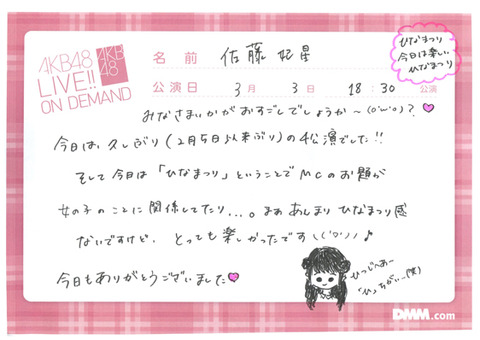 AKB48
LIVE!!
ON DEMAND
AKB
48
名前 佐藤妃星
公演日 3月3日 18:30 公演
ひなまつり
今日は楽しい
ひなまつり
みなさまいかがおすごしでしょうか〜(o'ω'o)?♥
今日は、久しぶり(2月5日以来ぶり)の公演でした!!
そして今日は「ひなまつり」ということでMCのお題が
女の子のことに関係してたり...。まぁあんまりひなまつり感
ないですけど、とっても楽しかったです\(('o'))/♪
今日もありがとうございました♥
ひつじへあー
「ひ」ちがいー(笑)
DMM.com